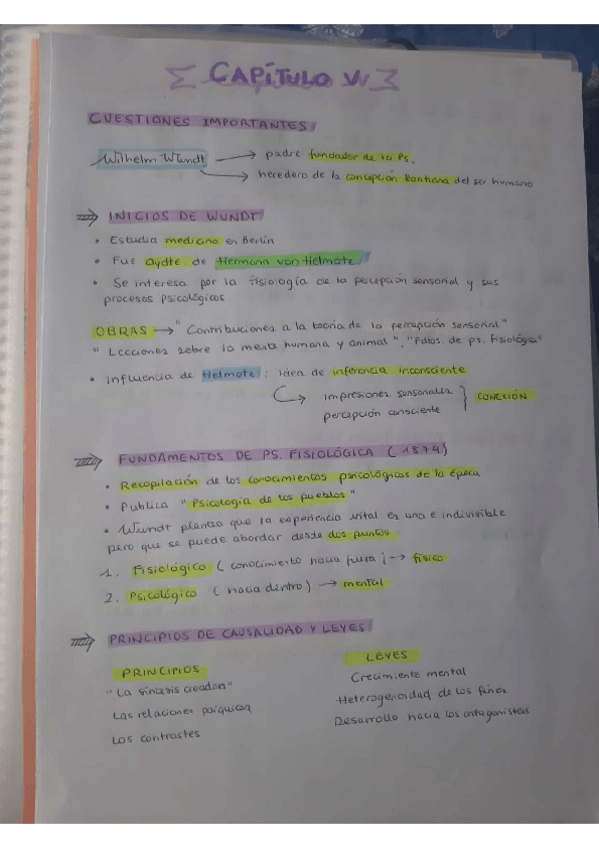 CAPÍTULO V
CUESTIONES IMPORTANTES
Wilhelm Wundt → padre fundador de la Ps.
→ heredero de la concepción kantiana del ser humano
INICIOS DE WUNDT
• Estudia medicina en Berlín
• Fue aydte. de Hermann von Helmotz
• Se interesa por la fisiología de la percepción sensorial y sus
procesos psicológicos
OBRAS → "Contribuciones a la teoría de la percepción sensorial"
"Lecciones sobre la mente humana y animal", "Fdtos. de ps. fisiológica"
• Influencia de Helmotz: idea de inferencia inconsciente
impresiones sensoriales
percepción consciente } CONEXIÓN
FUNDAMENTOS DE PS. FISIOLÓGICA (1874)
• Recopilación de los conocimientos psicológicos de la época
• Publica "Psicología de los pueblos"
• Wundt plantea que la experiencia vital es una e indivisible
pero que se puede abordar desde dos puntos
1. Fisiológico (conocimiento hacia fuera) → físico
2. Psicológico (hacia dentro) → mental
PRINCIPIOS DE CAUSALIDAD Y LEYES
PRINCIPIOS LEYES
"La síntesis creadora" Crecimiento mental
Las relaciones psíquicas Heterogeneidad de los fines
Los contrastes Desarrollo hacia los antagonistas